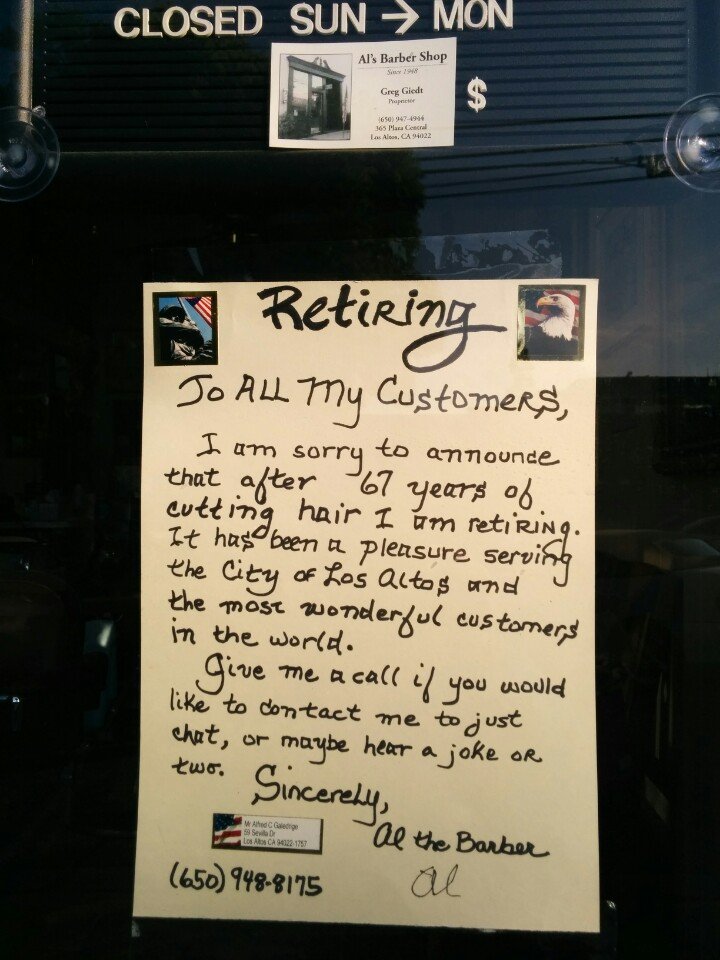 CLOSED SUN → MON
Al's Barber Shop
Since 1948
Greg Giedt
Proprietor
(650) 947-4944
365 Plaza Central
Los Altos, CA 94022
$
Retiring
To ALL My Customers,
I am sorry to announce
that after 67 years of
cutting hair I am retiring.
It has been a pleasure serving
the City of Los Altos and
the most wonderful customers
in the world.
Give me a call if you would
like to contact me to just
chat, or maybe hear a joke or
two.
Sincerely,
Mr Alfred C Galedrige
59 Sevilla Dr
Los Altos CA 94022-1757
Al the Barber
(650) 948-8175
Al